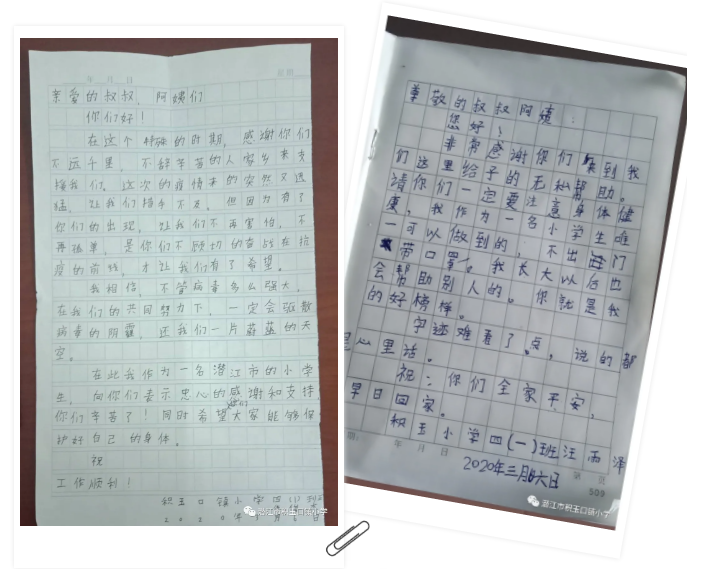 年 月 日
亲爱的叔叔、阿姨们
你们好！
在这个特殊的时期，感谢你们
不远千里，不辞辛苦的人家乡来支
援我们。这次的疫情来的突然又迅
猛，让我们措手不及。但因为有了
你们的出现，让我们不再害怕，不
再孤单，是你们不顾切的奋战在抗
疫的前线，才让我们有了希望。
我相信，不管病毒多么强大，
在我们的共同努力下，一定会驱散
病毒的阴霾，还我们一片蔚蓝的天
空。
在此我作为一名潜江市的小学
生，向你们表示忠心的感谢和支持，
你们辛苦了！同时希望你们大家能够保
护好自己的身体。
祝
工作顺利！
积玉口镇小学四(1)
潜江市积玉口镇小学
尊敬的叔叔阿姨：
您好！
非常感谢你们来到我
们这里给予的无私帮助。
请你们一定要注意身体健
康，我作为一名小学生唯
一可以做到的，不出门
带口罩。我长大以后也
会帮助别人的。你就是我
的好榜样。
字迹难看了点，说的都
是心里话。
祝：你们全家平安，
早日回家。
积玉小学四(一)班汪雨泽
年 月 日
第 页
2020年三月六日
509
潜江市积玉口镇小学